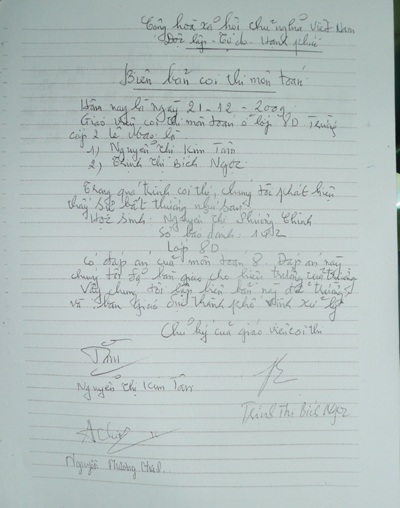 Cộng hoà xã hội chủ nghĩa Việt Nam
Độc lập - Tự do - Hạnh phúc
Biên bản coi thi môn toán
Hôm nay là ngày 21-12-2009
Giáo viên coi thi môn toán ở lớp 8D Trường
cấp 2 Lê là
1) Nguyễn Thị Kim Tâm
2) Trịnh Thị Bích Ngọc
Trong quá trình coi thi, chúng tôi phát hiện
thấy sự bất thường như sau
Học sinh: Nguyễn Thị Phương Chinh
Số báo danh: 1
Lớp 8D
có đáp án của môn toán 8. Đáp án này
chúng tôi đã bàn giao cho hiệu trưởng của trường
Vậy chúng tôi lập biên bản này để trường
và giáo thành phố xử lý
Chữ ký của giáo viên coi thi
Nguyễn Thị Kim Tâm
Trịnh Thị Bích Ngọc
Nguyễn Phương